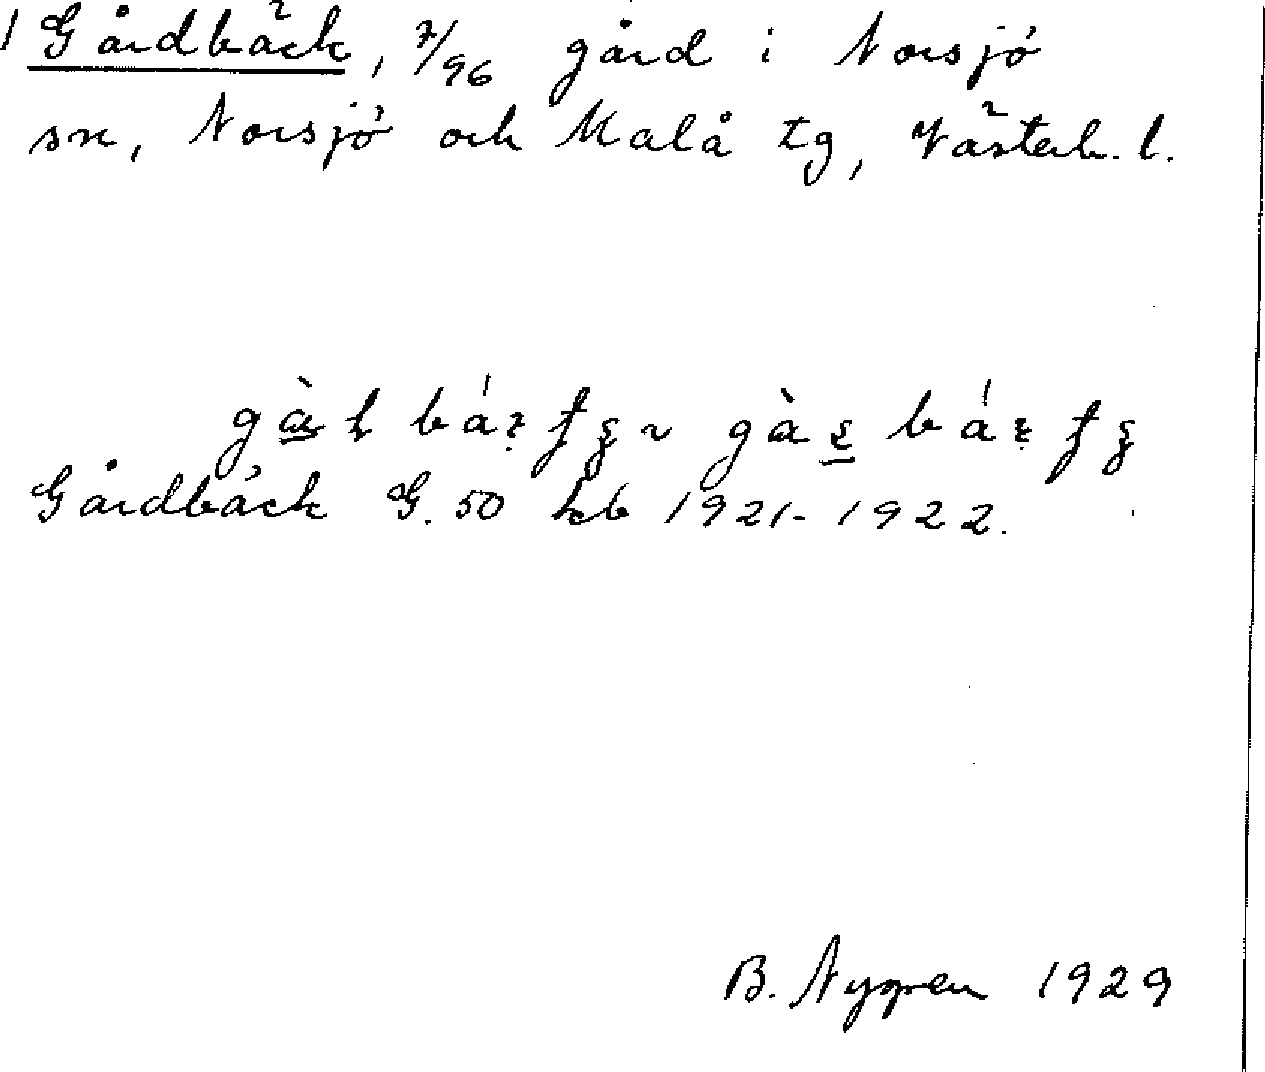 1 Gårdbäck, 7/96 gård i Norsjö
sn, Norsjö och Malå tg, Västerb. l.
Gårdbäck G. 50 hcb 1921-1922.
B. Nygren 1929